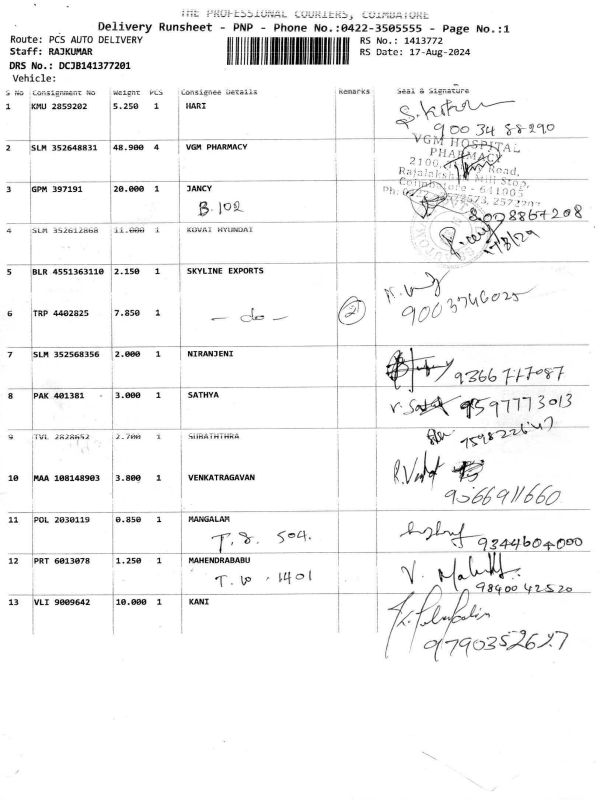 THE PROFESSIONAL COURIERS, COIMBATORE
Delivery Runsheet - PNP - Phone No.:0422-3505555 - Page No.:1
Route: PCS AUTO DELIVERY RS No.: 1413772
Staff: RAJKUMAR RS Date: 17-Aug-2024
DRS No.: DCJB141377201
Vehicle:
S No Consignment No Weight PCS Consignee Details Remarks Seal & Signature
1 KMU 2859202 5.250 1 HARI
90034 88290
2 SLM 352648831 48.900 4 VGM PHARMACY
VGM HOSPITAL
PHARMACY
2100, Road,
Rajalakshmi Mill Stop,
Coimbatore - 641005
3 GPM 397191 20.000 1 JANCY
B. 102
8098867208
4 SLM 352612868 11.000 1 KOVAI HYUNDAI
5 BLR 4551363110 2.150 1 SKYLINE EXPORTS
6 TRP 4402825 7.850 1 - do - 2
9003746025
7 SLM 352568356 2.000 1 NIRANJENI
9366717087
8 PAK 401381 3.000 1 SATHYA
9597773013
9 TVL 2828652 2.700 1 SUBATHTHRA
10 MAA 108148903 3.800 1 VENKATRAGAVAN
9566911660
11 POL 2030119 0.850 1 MANGALAM
T. 8. 504.
9344604000
12 PRT 6013078 1.250 1 MAHENDRABABU
T. 10 - 1401
9840042520
13 VLI 9009642 10.000 1 KANI
9790352627